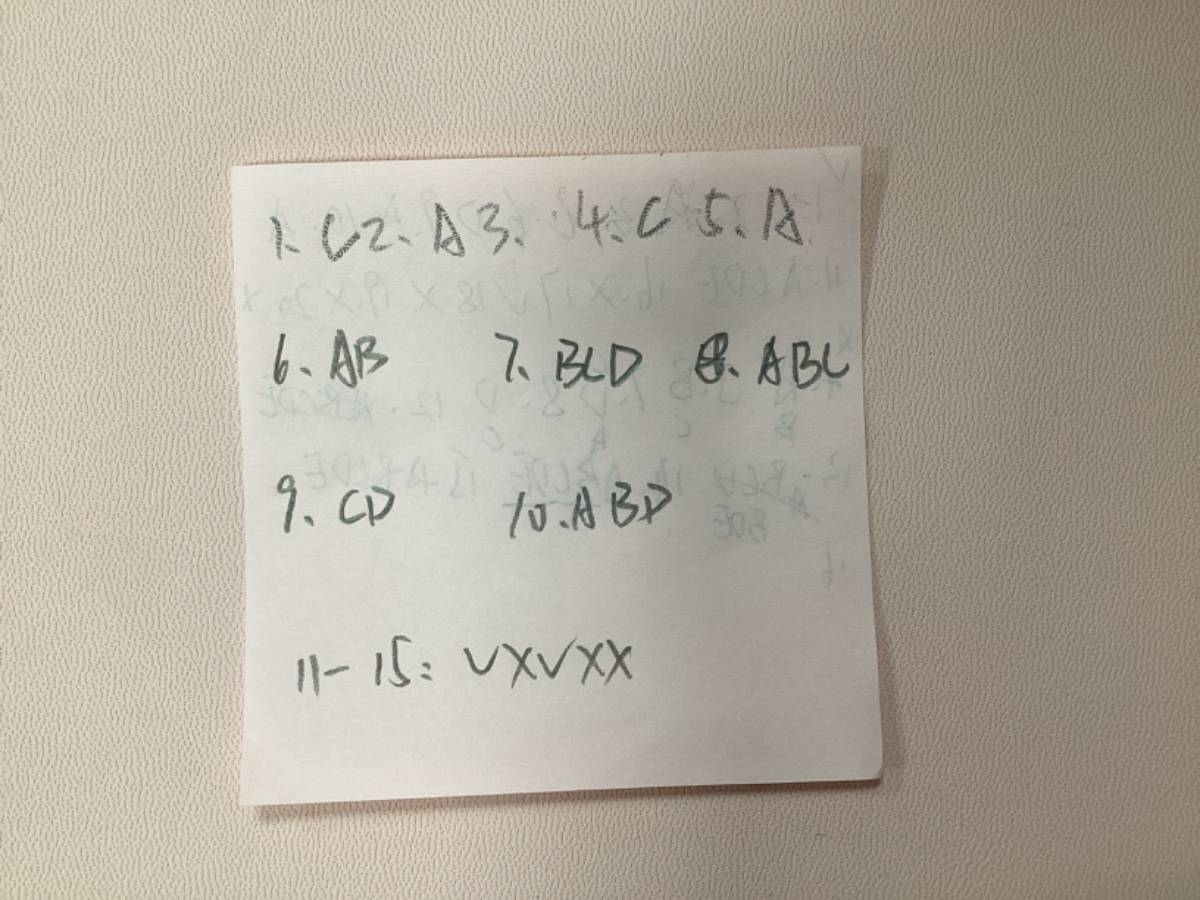 1. C 2、A 3、 4、C 5、A
6、AB 7、BCD 8、ABC
9、CD 10、ABD
11-15：√×√××